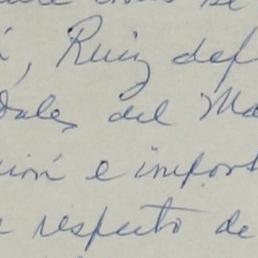 , Ruiz def
dales del Ma
ión e import
e respecto de